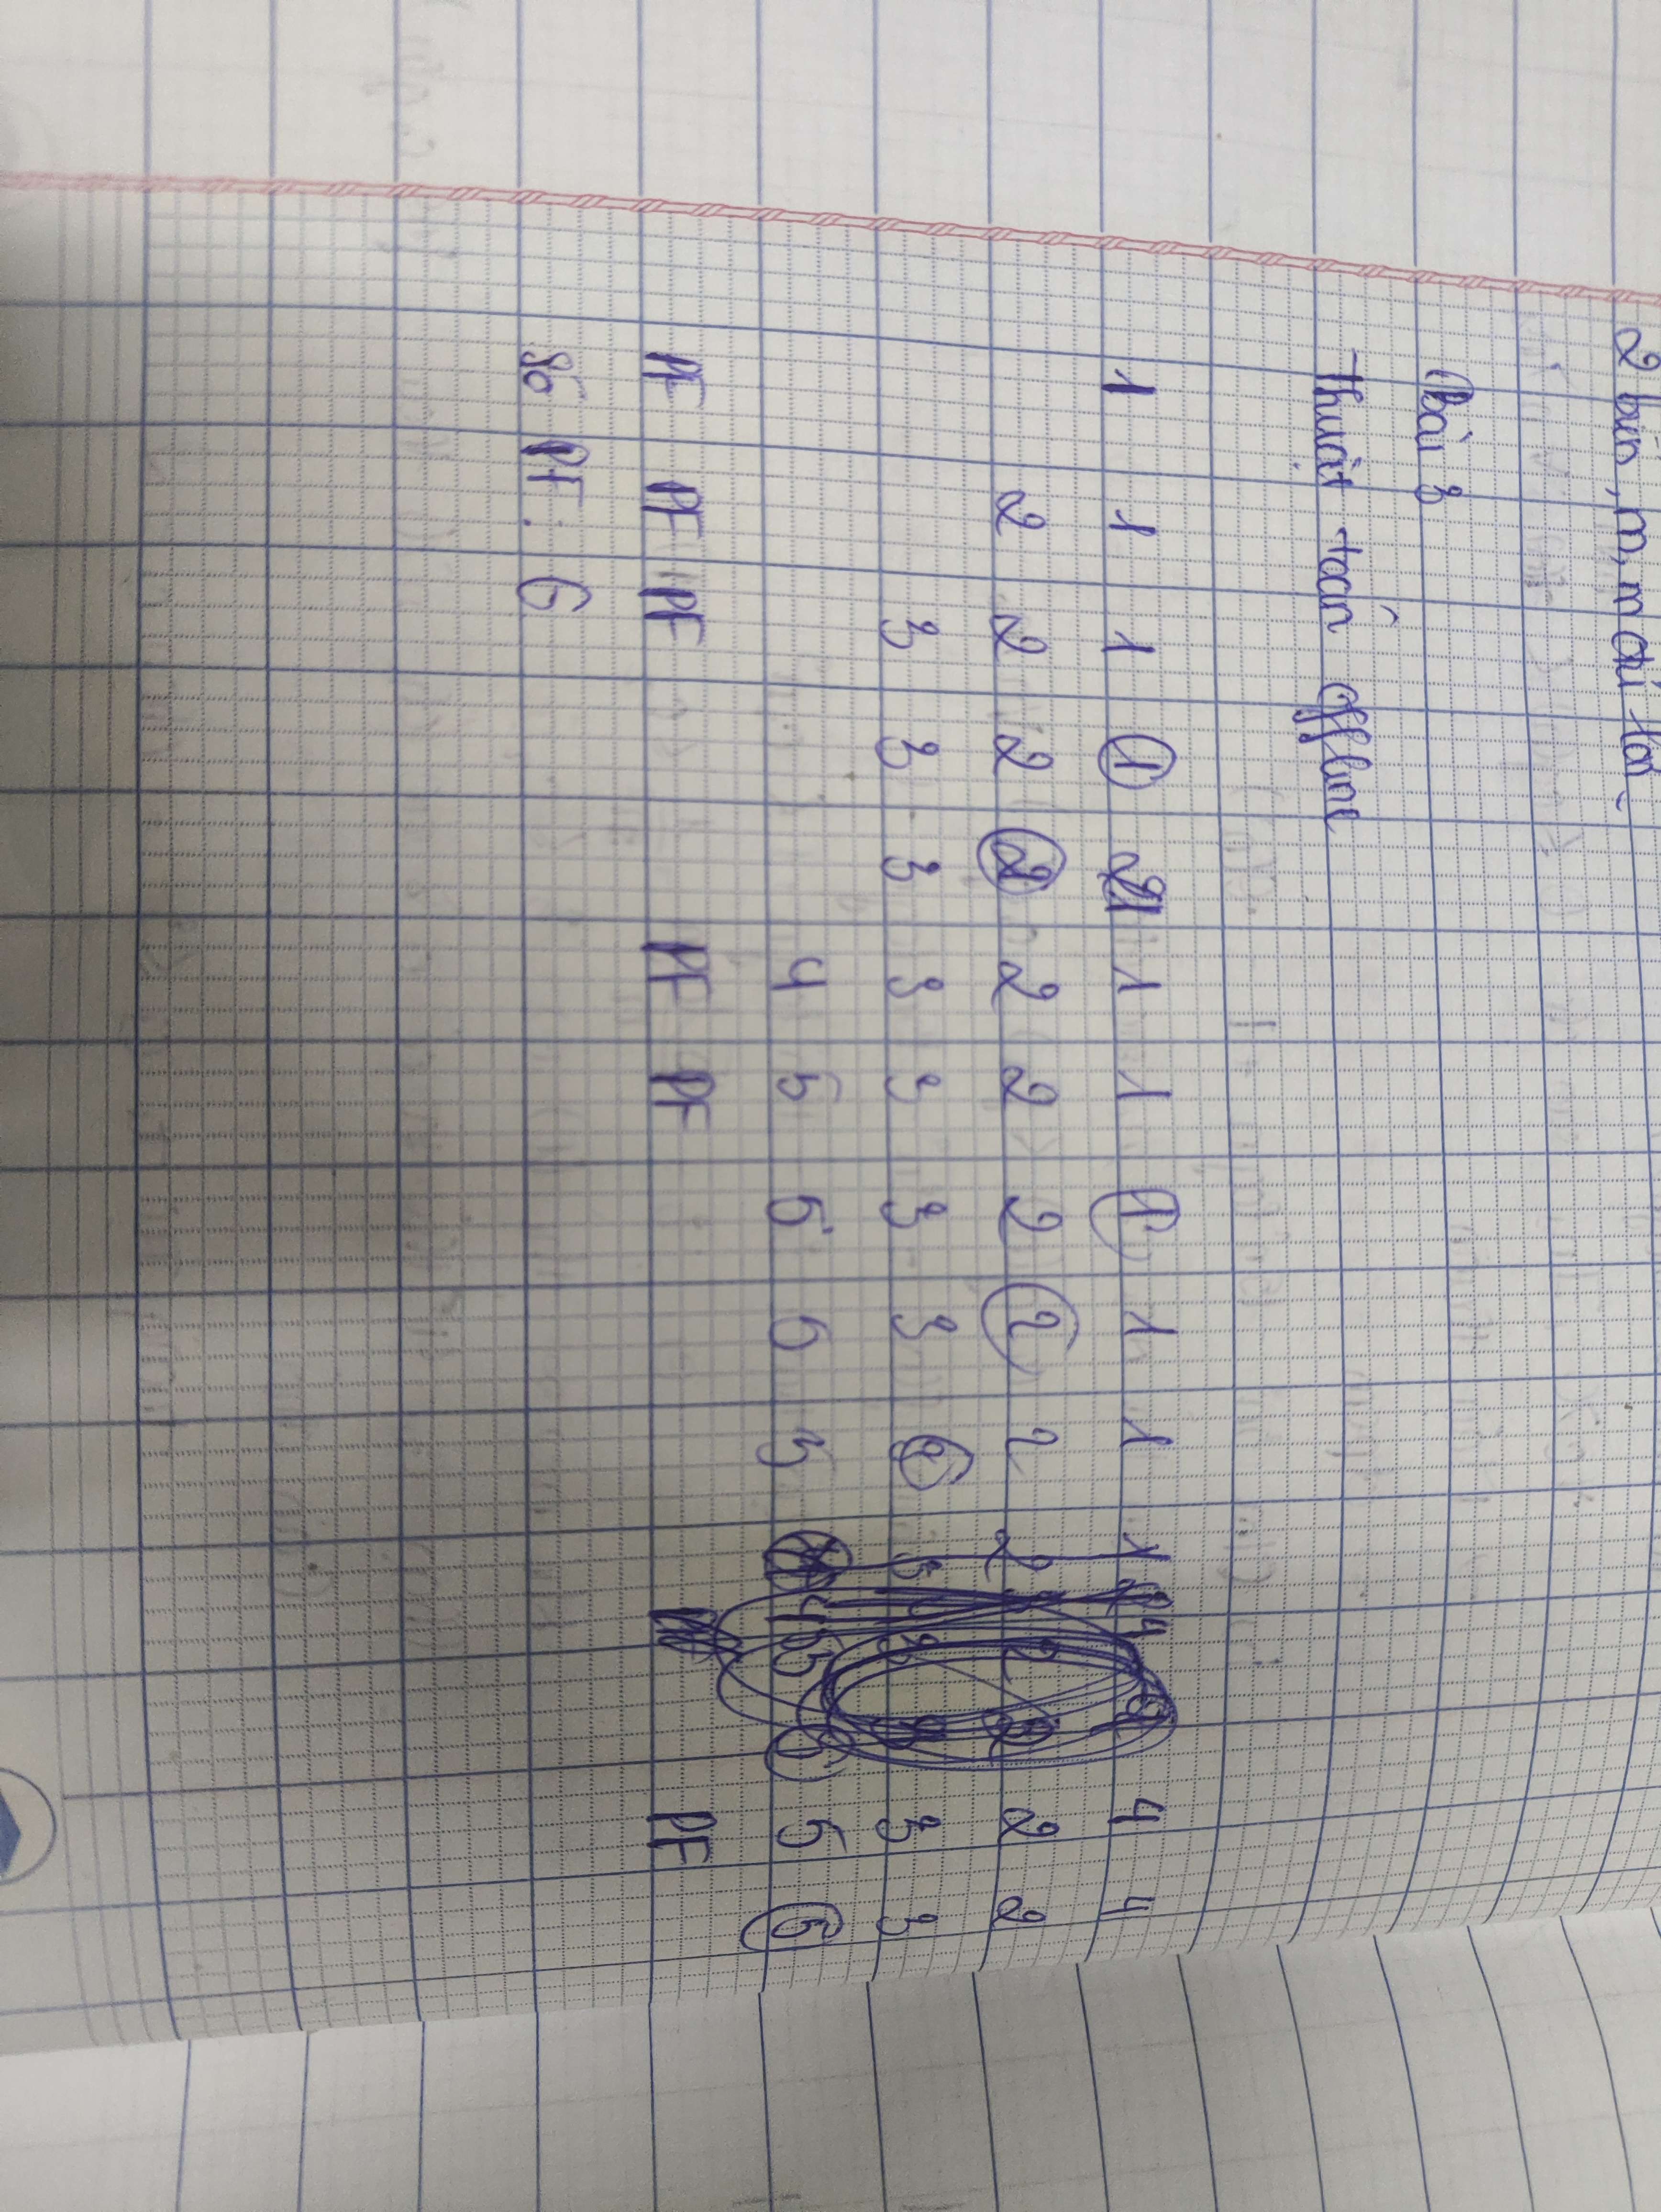 2 biến, m, n
Bài 3
Thuật toán offline
1 1 1 1 1 1 1 1 1 1 4 4
2 2 2 2 2 2 2 2 2 2 2
3 3 3 3 3 3 3 3 3 3
4 5 5 5 5 5 5
PF PF PF PF PF PF
Số PF: 6